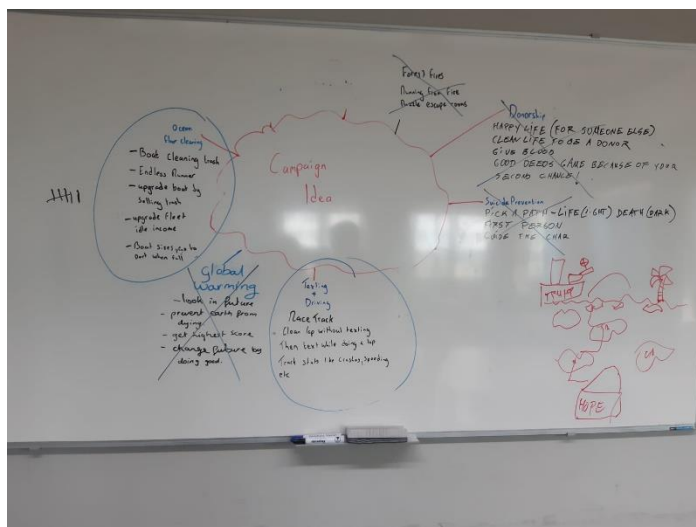 Forest Fires
Running from Fire
Puzzle escape rooms
Ocean
floor cleaning
- Boat cleaning trash
- Endless Runner
- upgrade boat by
selling trash
- upgrade fleet
idle income
- Boat sizes, go to
Port when full
Campaign
Idea
Donorship
HAPPY LIFE (FOR SOMEONE ELSE)
CLEAN LIFE TO BE A DONOR
GIVE BLOOD
GOOD DEEDS GAME BECAUSE OF YOUR
SECOND CHANCE!
Suicide Prevention
PICK A PATH - LIFE (LIGHT) DEATH (DARK)
FIRST PERSON
GUIDE THE CHAR
Global
warming
- look in future
- prevent earth from
dying.
- get highest score
- change future by
doing good.
Texting
+
Driving
RACE TRACK
- Clear lap without texting
Then text while doing a lap
Track stats like Crashes, Speeding
etc
HOPE